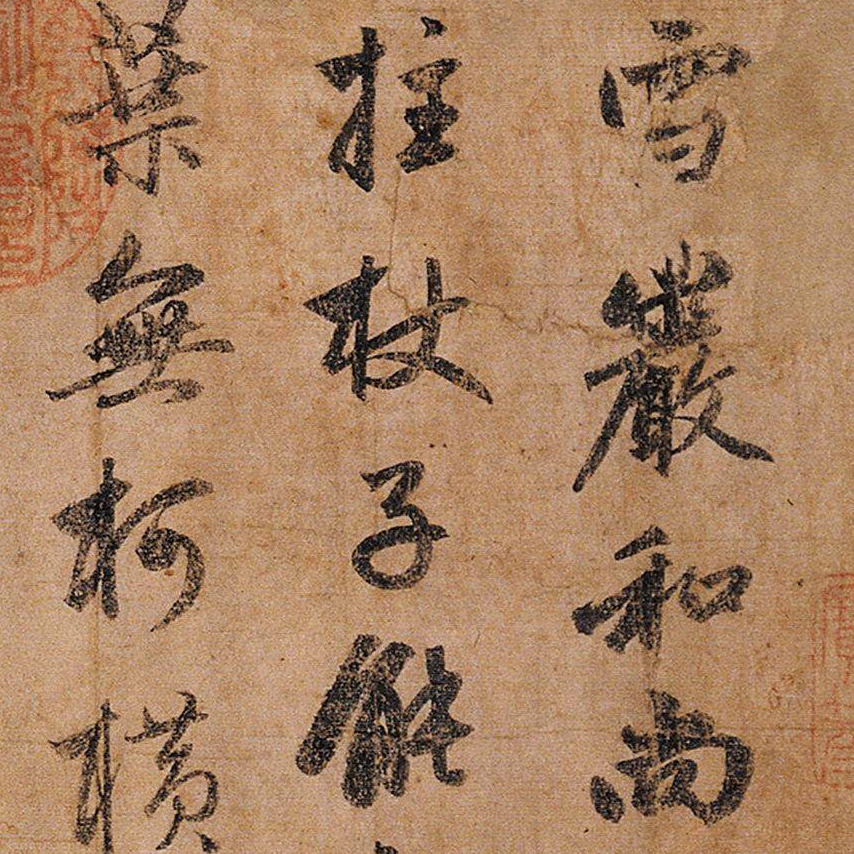 雪巖和尚
拄杖子能
葉無柯橫